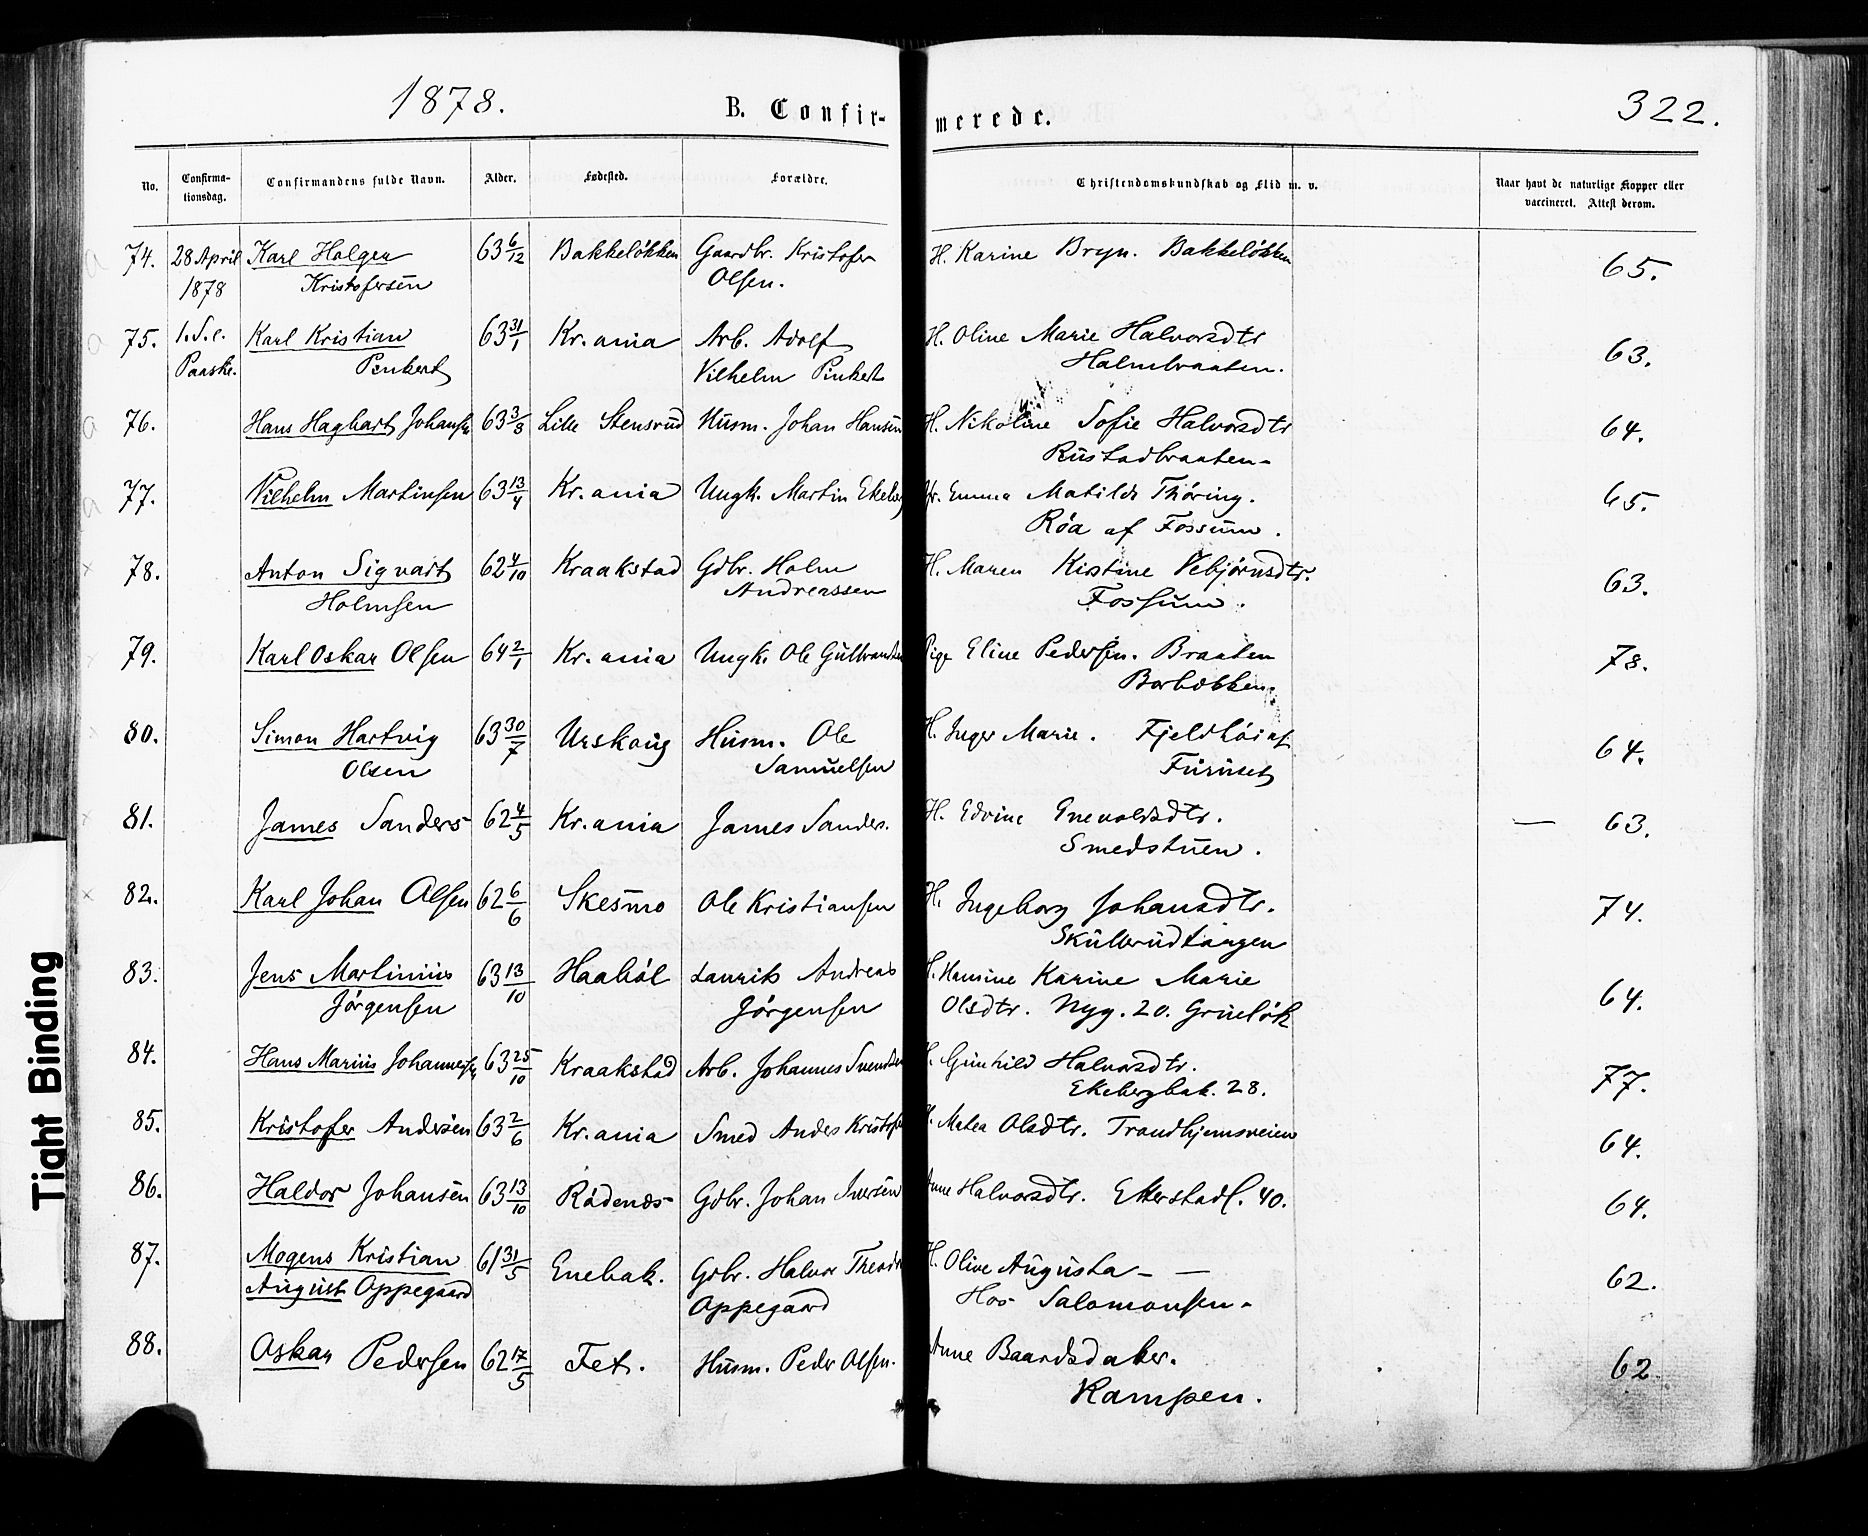 1878.
B. Confir-
merede.
322.
No.
Confirma-
tionsdag.
Confirmandens fulde Navn.
Alder.
Fødested.
Forældre.
Christendomskundskab og Flid m. v.
Naar havt de naturlige Kopper eller
vaccineret. Attest derom.
74. 28 April Karl Holger 63 6/12 Bakkeløkken Gaardbr. Kristofer H. Karine Bryn. Bakkeløkken 65.
1878 Kristofersen Olsen.
75. 1. S. e. Karl Kristian 63 31/1 Kr.ania Arb. Adolf H. Oline Marie Halvorsdtr 63.
Paaske. Pinkert Vilhelm Pinkert Holmbraaten.
76. Hans Hagbart Johansen 63 3/3 Lille Stensrud Husm. Johan Hansen H. Nikoline Sofie Halvorsdtr 64.
Rustadbraaten
77. Vilhelm Martinsen 63 13/4 Kr.ania Ungk. Martin Ekeberg Emma Matilde Thøring. 65.
Røa af Fossum.
78. Anton Sigvart 62 4/10 Kraakstad Gdbr. Holm H. Maren Kirstine Vebjørnsdtr. 63.
Holmsen Andreassen Fossum.
79. Karl Oskar Olsen 64 2/1 Kr.ania Ungk. Ole Gulbrandsen Pige Eline Pedersen. Braaten 78.
80. Simon Hartvig 63 30/7 Urskoug Husm. Ole H. Inger Marie. Fjeldhøi af 64.
Olsen Samuelsen Furuset
81. James Sanders 62 4/5 Kr.ania James Sanders. H. Edvine Enevoldsdtr. — 63.
Smedstuen.
82. Karl Johan Olsen 62 6/6 Skesmo Ole Kristiansen H. Ingeborg Johansdtr. 74.
Skullerudtangen
83. Jens Martinius 63 13/10 Haabøl Laurits Andreas H. Karine Marie 64.
Jørgensen Jørgensen Olsdtr. Nyg. 20. Grüneløk
84. Hans Marius Johannesen 63 25/10 Kraakstad Arb. Johannes Svendsen H. Gunhild Halvorsdtr. 77.
Ekebergbak. 28.
85. Kristofer Andersen 63 2/6 Kr.ania Smed Anders Kristofersen H. Matea Olsdtr. Trondhjemsveien 64.
86. Haldor Johansen 63 13/10 Rødenæs Gdbr. Johan Iversen Anne Halvorsdtr. Etterstadf. 40. 64.
87. Mogens Kristian 61 31/5 Enebak. Gdbr. Halvor H. Olive Augusta – — 62.
August Oppegaard Oppegaard Hos Salomonsen
88. Oskar Pedersen 62 17/5 Fet. Husm. Peder Olsen. Anne Baardsdater. 62.
Kampen.
Tight Binding